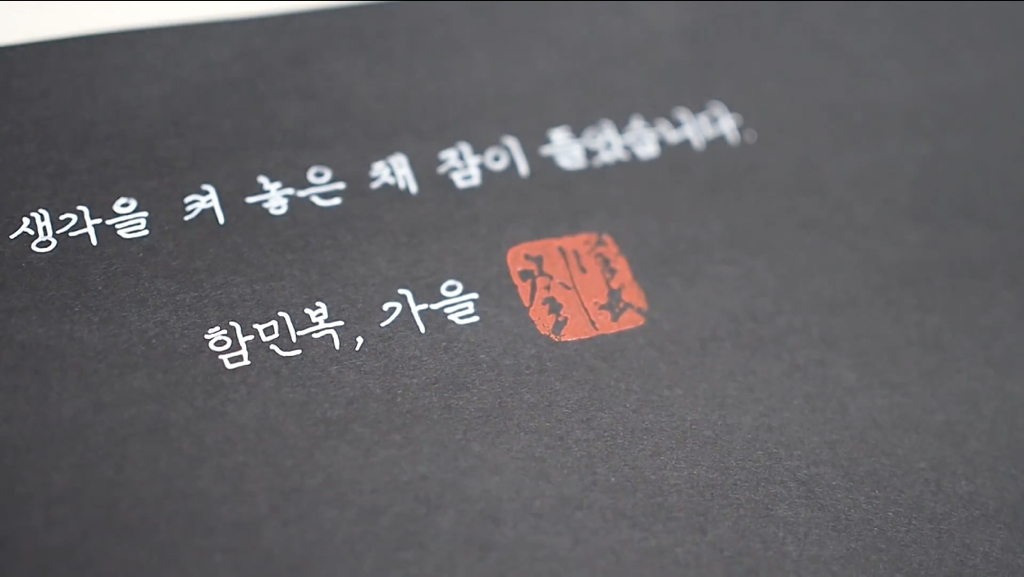 생각을 켜 놓은 채 잠이 들었습니다.
함민복, 가을